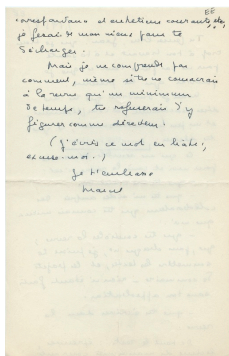 correspondance et entretiens courants, etc,
je ferai de mon mieux pour te
décharger.
Mais je ne comprends pas
comment, même si tu ne consacrais
à la revue qu'un minimum
de temps, tu refuserais d'y
figurer comme directeur.
(J'écris ce mot en hâte;
excuse-moi.)
Je t'embrasse